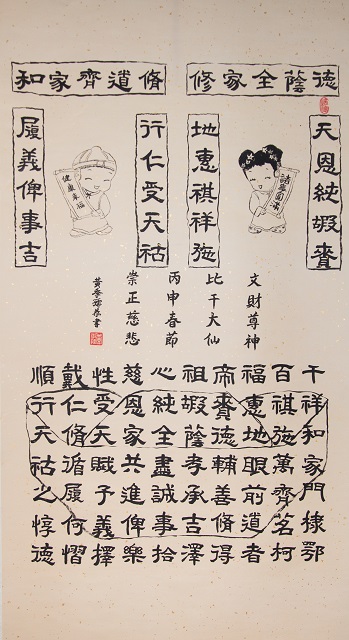 德蔭全家修
脩道齊家和
天恩純嘏賚
地惠祺祥施
行仁受天祜
履義俾事吉
諸事圓滿
健康幸福
文財尊神
比干大仙
丙申春節
崇正慈悲
恭書
千祥和家門棣鄂
百祺施萬齊茗柯
福惠地眼前道者
帝賚德輔善脩得
祖嘏蔭孝承吉澤
心純全盡誠事拾
慈恩家共進俾樂
性受天賦予義擇
戴仁脩循履何慴
順行天祜之惇德